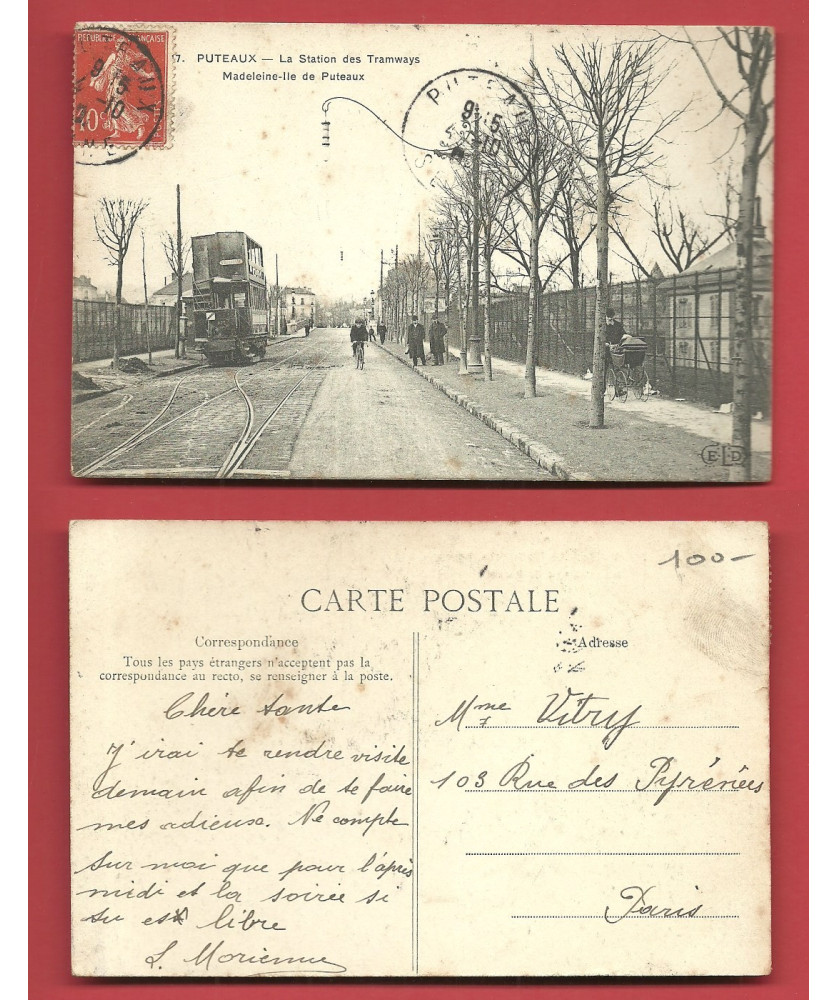 7. PUTEAUX — La Station des Tramways
Madeleine-Ile de Puteaux
10c
PUTEAUX
9 15
10
PUTEAUX
9 15
10
E.L.D
100-
CARTE POSTALE
Correspondance
Tous les pays étrangers n'acceptent pas la
correspondance au recto, se renseigner à la poste.
Chère tante
J'irai te rendre visite
demain afin de te faire
mes adieux. Ne compte
sur moi que pour l'après
midi et la soirée si
tu es libre
Adresse
Mme Vitry
103 Rue des Pyrénées
Paris